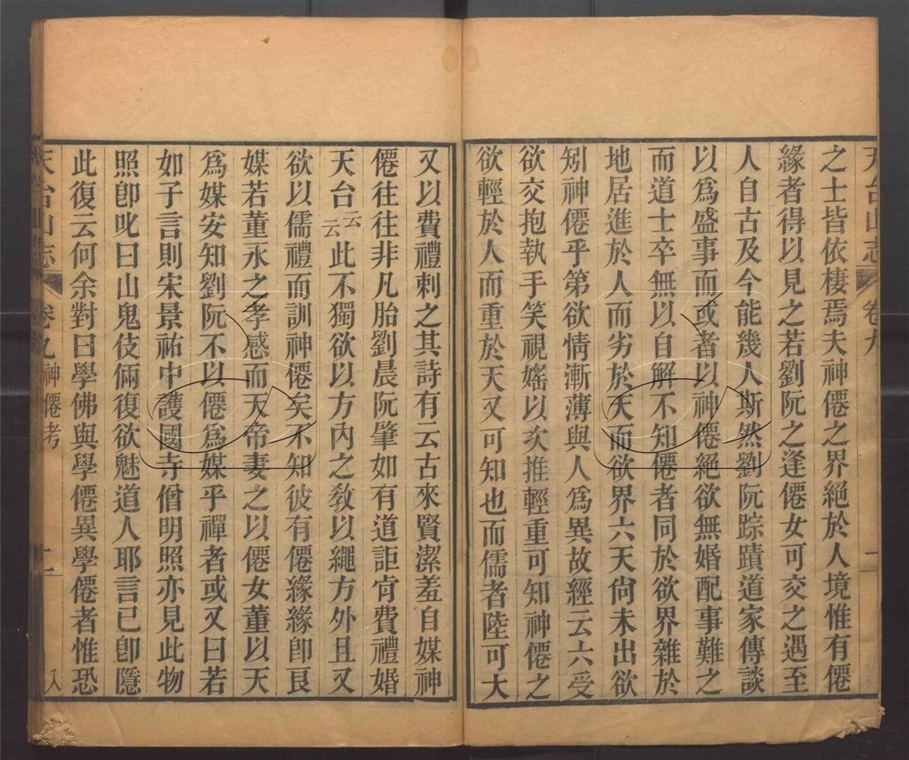 天台山志 卷九 一
之士皆依棲焉夫神僊之界絕於人境惟有僊
緣者得以見之若劉阮之逢僊女可交之遇至
人自古及今能幾人斯然劉阮踪蹟道家傳談
以爲盛事而或者以神僊絕欲無婚配事難之
而道士卒無以自解不知僊者同於欲界雜於
地居進於人而劣於天而欲界六天尙未出欲
矧神僊乎第欲情漸薄與人爲異故經云六受
欲交抱執手笑視婬以次推輕重可知神僊之
欲輕於人而重於天又可知也而儒者陸可大
又以費禮刺之其詩有云古來賢潔羞自媒神
僊往往非凡胎劉晨阮肇如有道詎肻費禮婚
天台云云此不獨欲以方內之敎以繩方外且又
欲以儒禮而訓神僊矣不知彼有僊緣緣卽良
媒若董永之孝感而天帝妻之以僊女董以天
爲媒安知劉阮不以僊爲媒乎禪者或又曰若
如子言則宋景祐中護國寺僧明照亦見此物
照卽叱曰山鬼伎倆復欲魅道人耶言已卽隱
此復云何余對曰學佛與學僊異學僊者惟恐
天台山志 卷九 神僊考 二 八